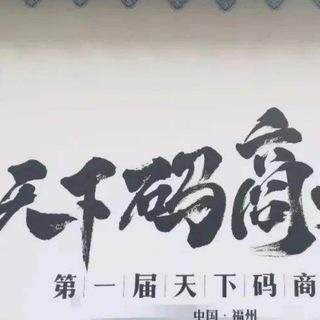 天下码商
第一届天下码商
中国·福州